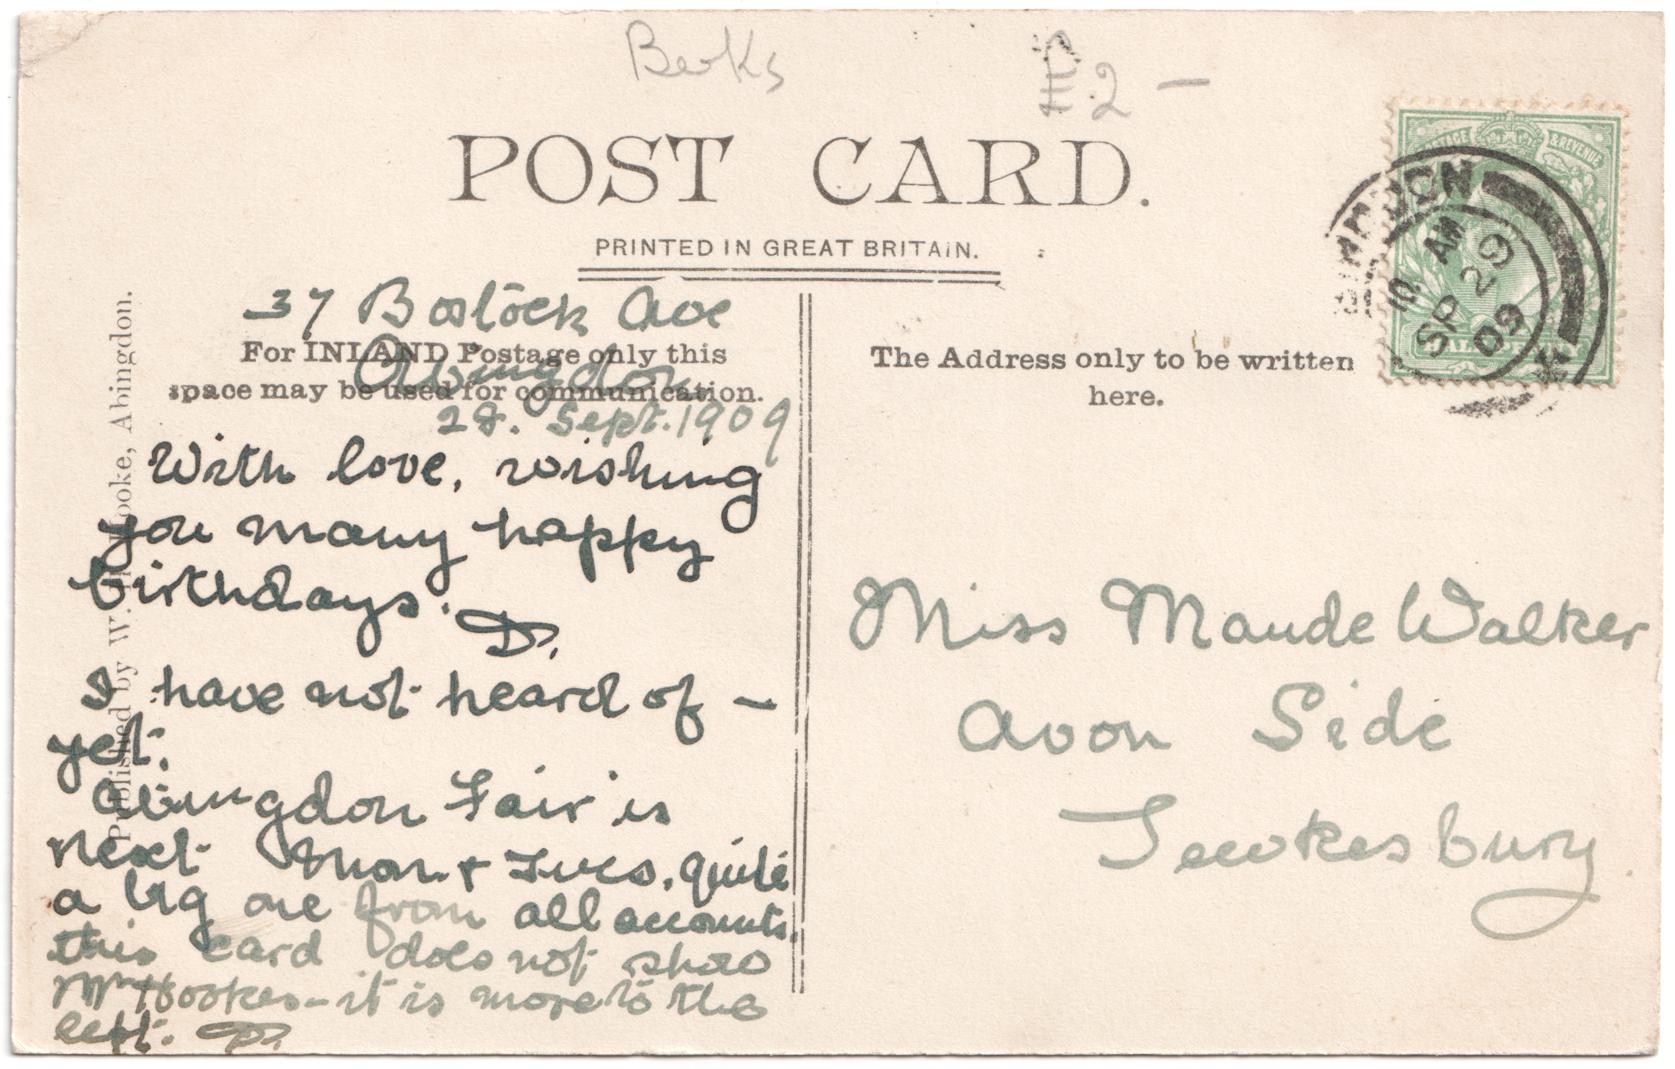 Berks
£2 —
POST CARD.
PRINTED IN GREAT BRITAIN.
37 Bostock Ave
Abingdon
28. Sept. 1909
For INLAND Postage only this
space may be used for communication.
With love, wishing
you many happy
birthdays. D.
I have not heard of —
yet.
Abingdon Fair is
next Mon. + Tues, quite
a big one from all accounts.
this card does not show
Mr Hookes - it is more to the
left. D.
Published by W. H. Hooke, Abingdon.
The Address only to be written
here.
Miss Maude Walker
Avon Side
Tewkesbury
POSTAGE & REVENUE
HALFPENNY
ABINGDON
10 AM
SP 29
09